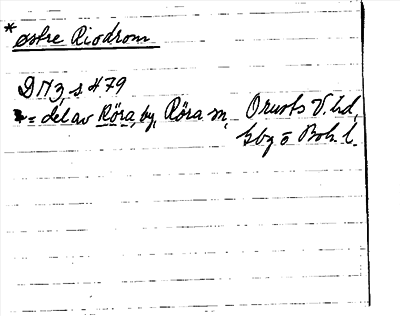 * østre Riodrom
DN3 s 479
= del av Röra, by, Röra sn, Orusts V. hd,
Gbg o Boh. l.